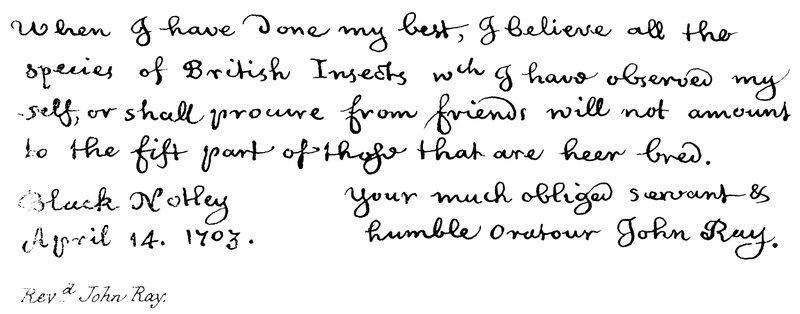 When I have done my best, I believe all the
species of British Insects wch I have observed my
self, or shall procure from friends will not amount
to the fift part of those that are heer bred.
Black Notley
April 14. 1703.
Your much obliged servant &
humble Oratour John Ray.
Revd John Ray.